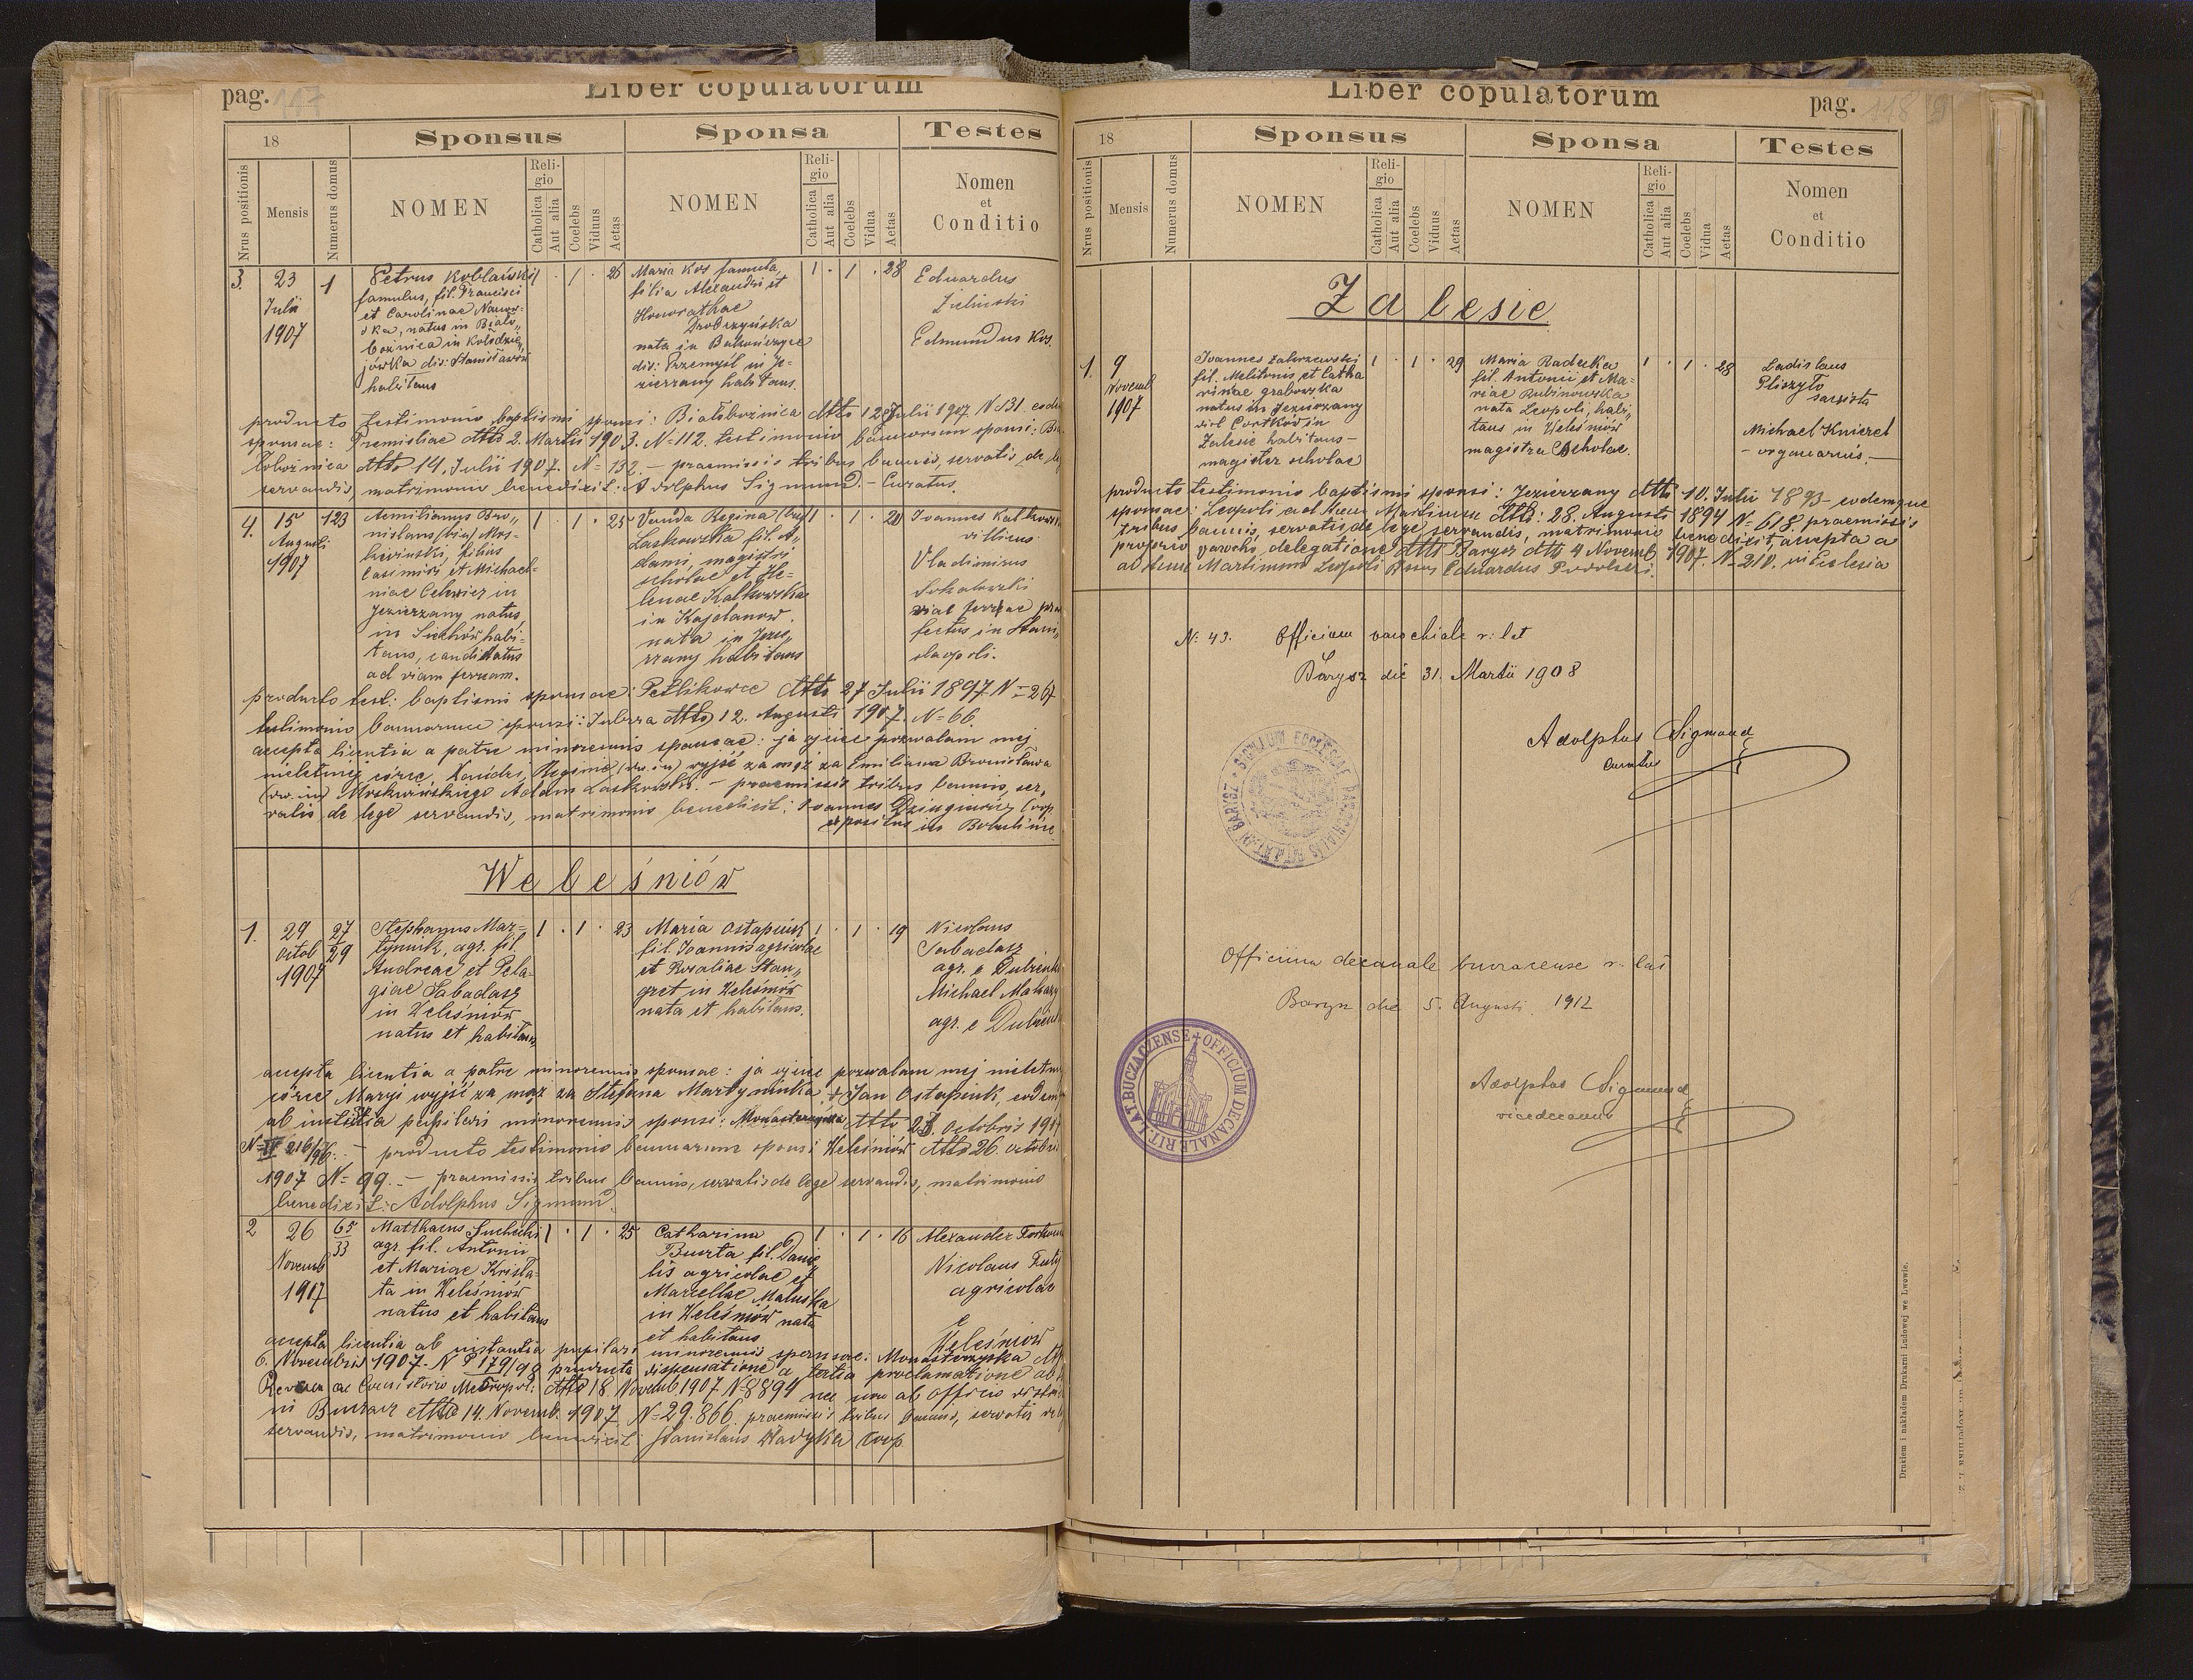 pag. 117
Liber copulatorum
18
Sponsus
Sponsa
Testes
Nrus positionis
Mensis
Numerus domus
NOMEN
Religio
Catholica
Aut alia
Coelebs
Viduus
Aetas
NOMEN
Religio
Catholica
Aut alia
Coelebs
Vidua
Aetas
Nomen
et
Conditio
3.
23
Julii
1907
1
Petrus Koblański
famulus, fil. Francisci
et Carolinae Nawor-
ska, natus in Biało„
bożnica in Kołodzie„
jówka dis: Stanisławów
habitans
1 . 1 . 26
Maria Kos famula,
filia Alexandri et
Honorathae
Drobczyńska
nata in Bakończyce
dis: Przemyśl in Je-
zierzany habitans.
1 . 1 . 28
Eduardus
Zielinski
Edmundus Kos.
producto testimonio baptismi sponsi: Białobożnica dtto 12 Julii 1907 N 131.
sponsae: Premisliae dtto 2. Martii 1903. N=112. testimonio bannorum sponsi:
łobożnica dtto 14. Julii 1907. N=132. — praemissis tribus bannis, servatis de
servandis, matrimonio benedixit: Adolphus Sigmund. - Curatus.
4.
15
Augusti
1907
123
Aemilianus Bro„
nislaus (bin) Mos-
kwinski, filius
Casimiri et Michael-
niae Celwicz in
Jezierzany natus,
in Siechów habi-
tans, candidatus
ad viam ferream.
1 . 1 . 25
Vanda Regina (bin)
Laskowska fil. A„
dami, magistri
scholae et He-
lenae Kalkowska
in Kajetanow.
nata in Jezie„
rzany habitans
1 . 1 . 20
Joannes
villicus
Vladimirus
Sokalowski
viae ferreae
fectus in Stani„
slaopoli.
producto test: baptismi sponsae: Petlikowce dtto 27 Julii 1897 N=267
testimonio bannorum sponsi: dtto 12. Augusti 1907. N=66.
accepta licentia a patre minorennis sponsae: ja ojciec pozwalam mej
nieletniej córce, Wandzie Reginie (dw. im) wyjść za mąż za Emiliana Bronisława
(dw. im) Moskwińskiego Adam Laskowski. — praemissis tribus bannis, ser„
vatis de lege servandis, matrimonio benedixit: Joannes coop.
expositus in Bobulińce
Weleśniów
1.
29
Octob
1907
27
29
Stephanus Mar-
tyniuk, agr. fil.
Andreae et Pela-
giae Sabadasz
in Weleśniów
natus et habitans
1 . 1 . 23
Maria Ostapiuk
fil. Joannis agricolae
et Rosaliae Stan„
gret in Weleśniów
nata et habitans.
1 . 1 . 19
Nicolaus
Sabadasz
agr. e
Michael
agr. e
accepta licentia a patre minorennis sponsae: ja ojciec pozwalam mej
córce Maryi wyjść za mąż za Stefana Martyniuka + Jan Ostapiuk,
ab instantia pupilari minorennis sponsi: Monasterzyska dtto 23. octobris
N=IV 216/96. — producto testimonio bannorum sponsi Weleśniów dtto 26.
1907 N=99. — praemissis tribus bannis, servatis de lege servandis, matrimonio
benedixit: Adolphus Sigmund.
2
26
Novemb
1907
65
33
Matthaeus Suchecki
agr. fil. Antonii
et Mariae Krista-
ta in Weleśniów
natus et habitans
1 . 1 . 25
Catharina
Buszta fil. Danie
lis agricolae et
Marcellae Maluska
in Weleśniów nata
et habitans
1 . 1 . 16
Alexander
Nicolaus
agricolae
e
Weleśniów
accepta licentia ab instantia pupilari minorennis sponsae: Monasterzyska
6. Novembris 1907. N P 179/99 producta dispensatione a tertia proclamatione
Consistorio Metropol: dtto 18 Novemb. 1907 N 8894 nec non ab officio
in Buczacz dtto 14. Novemb. 1907 N=29.866. praemissis tribus bannis, servatis
servandis, matrimonio benedixit: Stanislaus Wadyka coop.
Liber copulatorum
pag. 118
18
Sponsus
Sponsa
Testes
Nrus positionis
Mensis
Numerus domus
NOMEN
Religio
Catholica
Aut alia
Coelebs
Viduus
Aetas
NOMEN
Religio
Catholica
Aut alia
Coelebs
Vidua
Aetas
Nomen
et
Conditio
Zalesie
1.
9
Novemb
1907
Joannes Zaborzewski
fil. Melitonis et Catha
rinae Grabowska
natus in Jezierzany
dist Czortków in
Zalesie habitans —
magister scholae
1 . 1 . 29
Maria Radecka
fil. Antonii et Ma-
riae Rubinowska
nata Leopoli, habi„
tans in Weleśniów
magistra Scholae.
1 . 1 . 28
Ladislaus
Pliszyło
Michael Knierel
- organarius. —
producto testimonio baptismi sponsi: Jezierzany dtto 10. Julii 1893 — eodemque
sponsae: Leopoli ad S. Martinum dtto: 28. Augusti 1894 N=618 praemissis
tribus bannis, servatis de lege servandis, matrimonio benedixit, accepta a
proprio parocho delegatione dtto Barysz dtto 4 Novemb 1907. N=210. in Ecclesia
ad Martinum Leopoli Eduardus Podolski.
N: 43. Officium parochiale r: lat
Barysz die 31. Martii 1908
Adolphus Sigmund
Curatus
Officium decanale buczacense r. lat
Barysz die 5. Augusti 1912
OFFICIUM DECANALE RIT. LAT. BUCZACZENSE
Adolphus Sigmund
vicedecanus
Drukiem i nakładem Drukarni Ludowej we Lwowie.